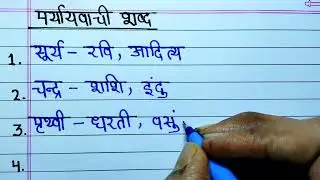 पर्यायवाची शब्द
1. सूर्य – रवि, आदित्य
2. चन्द्र – शशि, इंदु
3. पृथ्वी – धरती, वसुं
4.